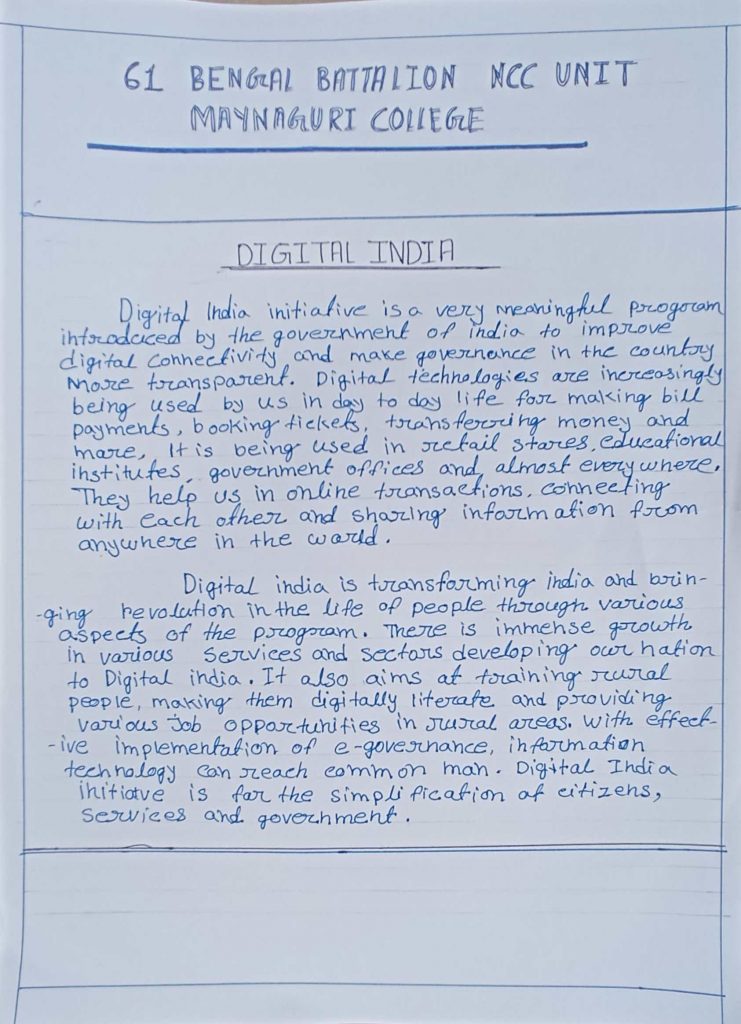 61 BENGAL BATTALION NCC UNIT
MAYNAGURI COLLEGE
DIGITAL INDIA
Digital India initiative is a very meaningful program
introduced by the government of india to improve
digital connectivity and make governance in the country
more transparent. Digital technologies are increasingly
being used by us in day to day life for making bill
payments, booking tickets, transferring money and
more. It is being used in retail stores, educational
institutes, government offices and almost everywhere.
They help us in online transactions, connecting
with each other and sharing information from
anywhere in the world.
Digital india is transforming india and brin-
-ging revolution in the life of people through various
aspects of the program. There is immense growth
in various services and sectors developing our nation
to Digital india. It also aims at training rural
people, making them digitally literate and providing
various job opportunities in rural areas. With effect-
-ive implementation of e-governance, information
technology can reach common man. Digital India
initiatve is for the simplification of citizens,
services and government.